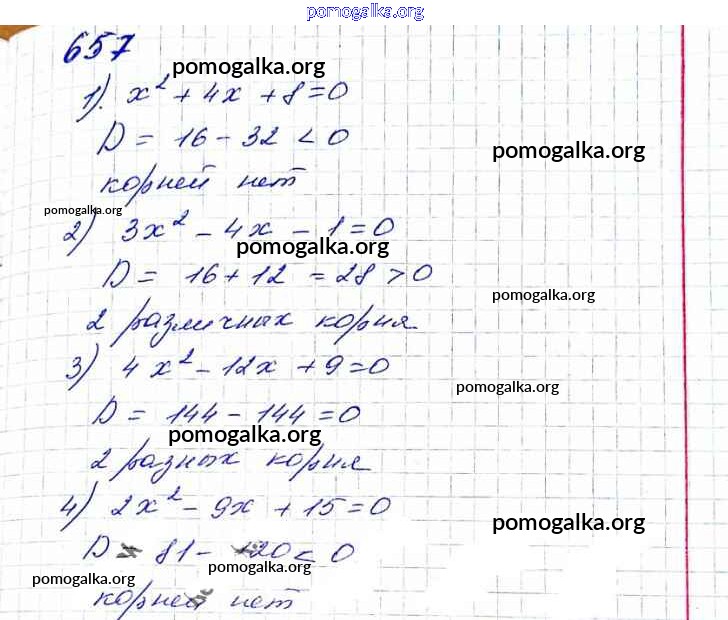 pomogalka.org
657
pomogalka.org
1). x² + 4x + 8 = 0
D = 16 - 32 < 0
pomogalka.org
корней нет
pomogalka.org
2) 3x² - 4x - 1 = 0
pomogalka.org
D = 16 + 12 = 28 > 0
pomogalka.org
2 различных корня
3) 4x² - 12x + 9 = 0
pomogalka.org
D = 144 - 144 = 0
pomogalka.org
2 разных корня
4) 2x² - 9x + 15 = 0
pomogalka.org
D = 81 - 120 < 0
pomogalka.org
pomogalka.org
корней нет